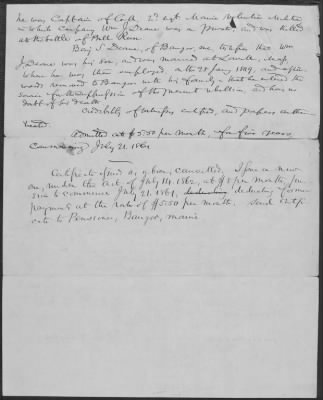 he was Captain of Co. A, 2d regt Maine Volunteer Militia
in which Company Wm J. Deane was a private, and was killed
at the battle of Bull Run.
Benj S. Deane, of Bangor, Me, testifies that Wm
J. Deane was his son, and was married at Lowell, Mass,
where he was then employed, on the 28 Jany 1849, and after
removed to Bangor with his family - that he entered the
service of the
of the present rebellion, and has no
doubt of his death.
Credibility of witnesses certified, and papers authen-
ticated.
Admitted at $5.50 per month, for five years,
Commencing July 21, 1861.
Certificate issued as above, cancelled. Issue a new
one, under the act of July 14, 1862, at $8 per month, pen-
sion to commence July 21, 1861, deducting former
payments at the rate of $5.50 per month. Send certifi-
cate to Pensioner, Bangor, Maine